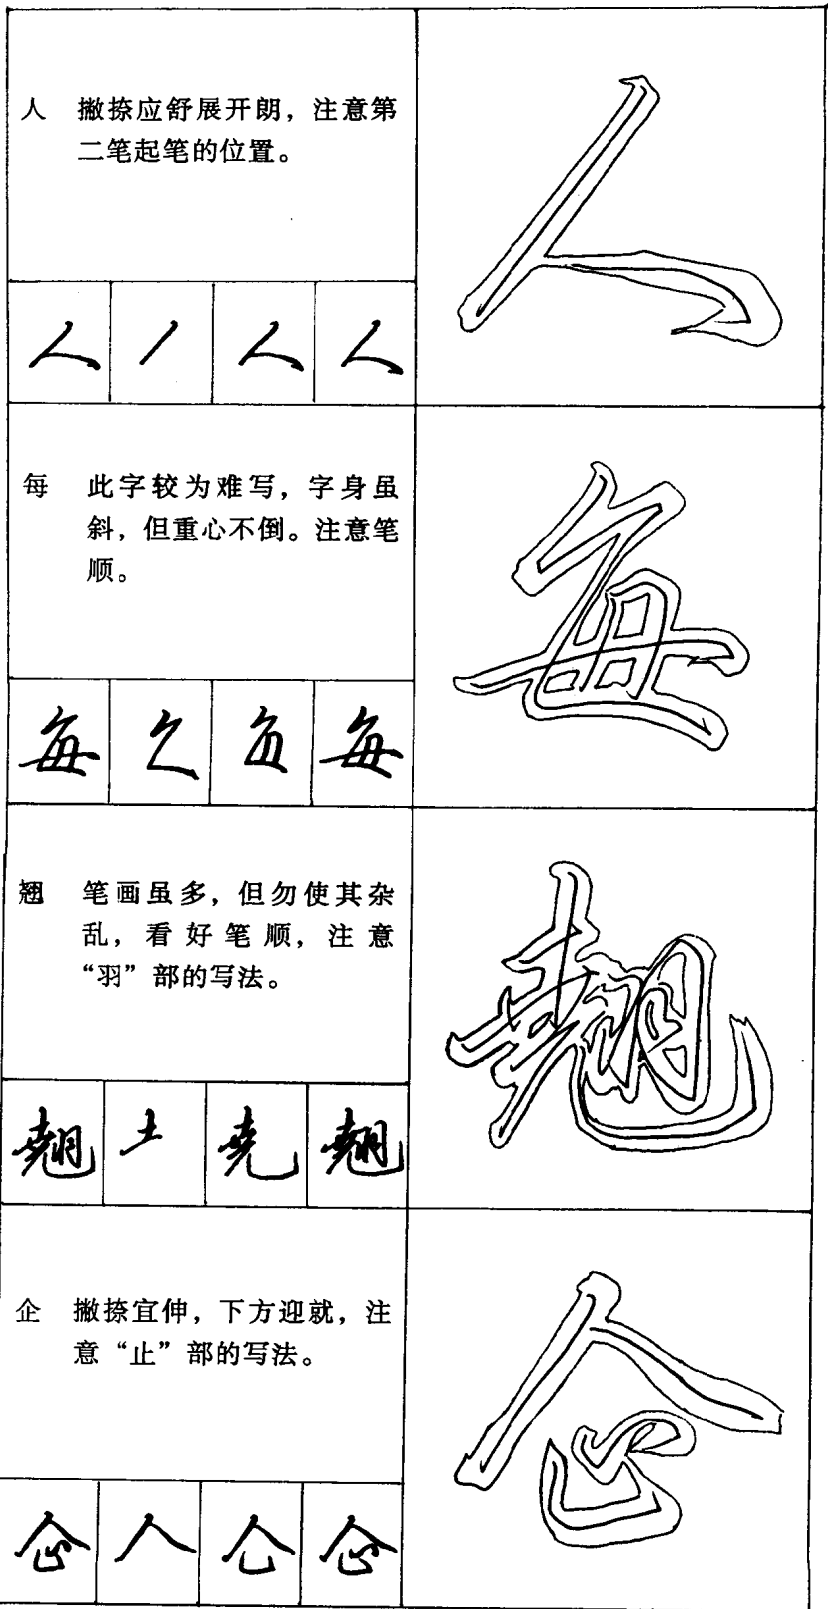 人 撇捺应舒展开朗，注意第
二笔起笔的位置。
人 丿 人 人
人
每 此字较为难写，字身虽
斜，但重心不倒。注意笔
顺。
每 每
每
翘 笔画虽多，但勿使其杂
乱，看好笔顺，注意
“羽”部的写法。
翘 土 尧 翘
翘
企 撇捺宜伸，下方迎就，注
意“止”部的写法。
企 人 企
企